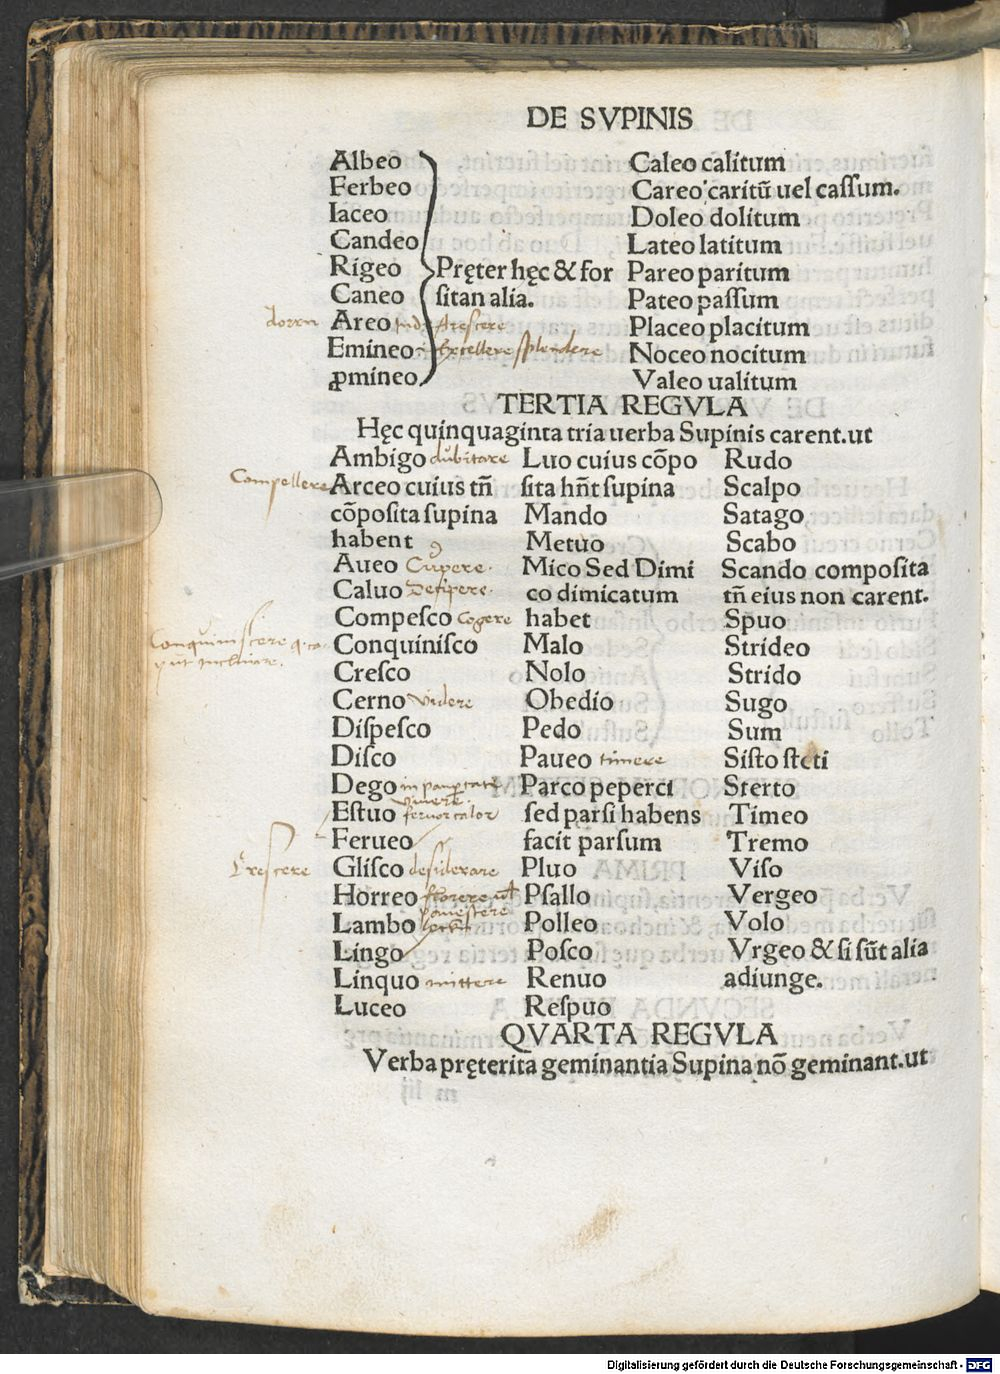 DE SVPINIS
Albeo
Ferbeo
Iaceo
Candeo
Rigeo
Caneo
Areo
Emineo
ꝓmineo
Pręter hęc & for
ſitan alia.
areſcere
Excellere ſplendere
Caleo calitum
Careo caritū uel caſſum.
Doleo dolitum
Lateo latitum
Pareo paritum
Pateo paſſum
Placeo placitum
Noceo nocitum
Valeo ualitum
TERTIA REGVLA
Hęc quinquaginta tria uerba Supinis carent.ut
Ambigo dubitare
Compellere
Arceo cuius tñ
cōpoſita ſupina
habent
Aueo Cupere.
Caluo Decipere.
Compeſco Cogere
Conquiniſco
Creſco
Cerno videre
Diſpeſco
Diſco
Dego
vivere
Eſtuo fervor calor
Ferueo
Creſcere
Gliſco deſiderare
Horreo
Lambo
Lingo
Linquo mittere
Luceo
Luo cuius cōpo
ſita hñt ſupina
Mando
Metuo
Mico Sed Dimi
co dimicatum
habet
Malo
Nolo
Obedio
Pedo
Paueo timere
Parco peperci
ſed parſi habens
facit parſum
Pluo
Pſallo
Polleo
Poſco
Renuo
Reſpuo
Rudo
Scalpo
Satago
Scabo
Scando compoſita
tñ eius non carent.
Spuo
Strideo
Strido
Sugo
Sum
Siſto ſteti
Sterto
Timeo
Tremo
Viſo
Vergeo
Volo
Vrgeo & ſi ſūt alia
adiunge.
QVARTA REGVLA
Verba pręterita geminantia Supina nō geminant.ut
Digitalisierung gefördert durch die Deutsche Forschungsgemeinschaft - DFG